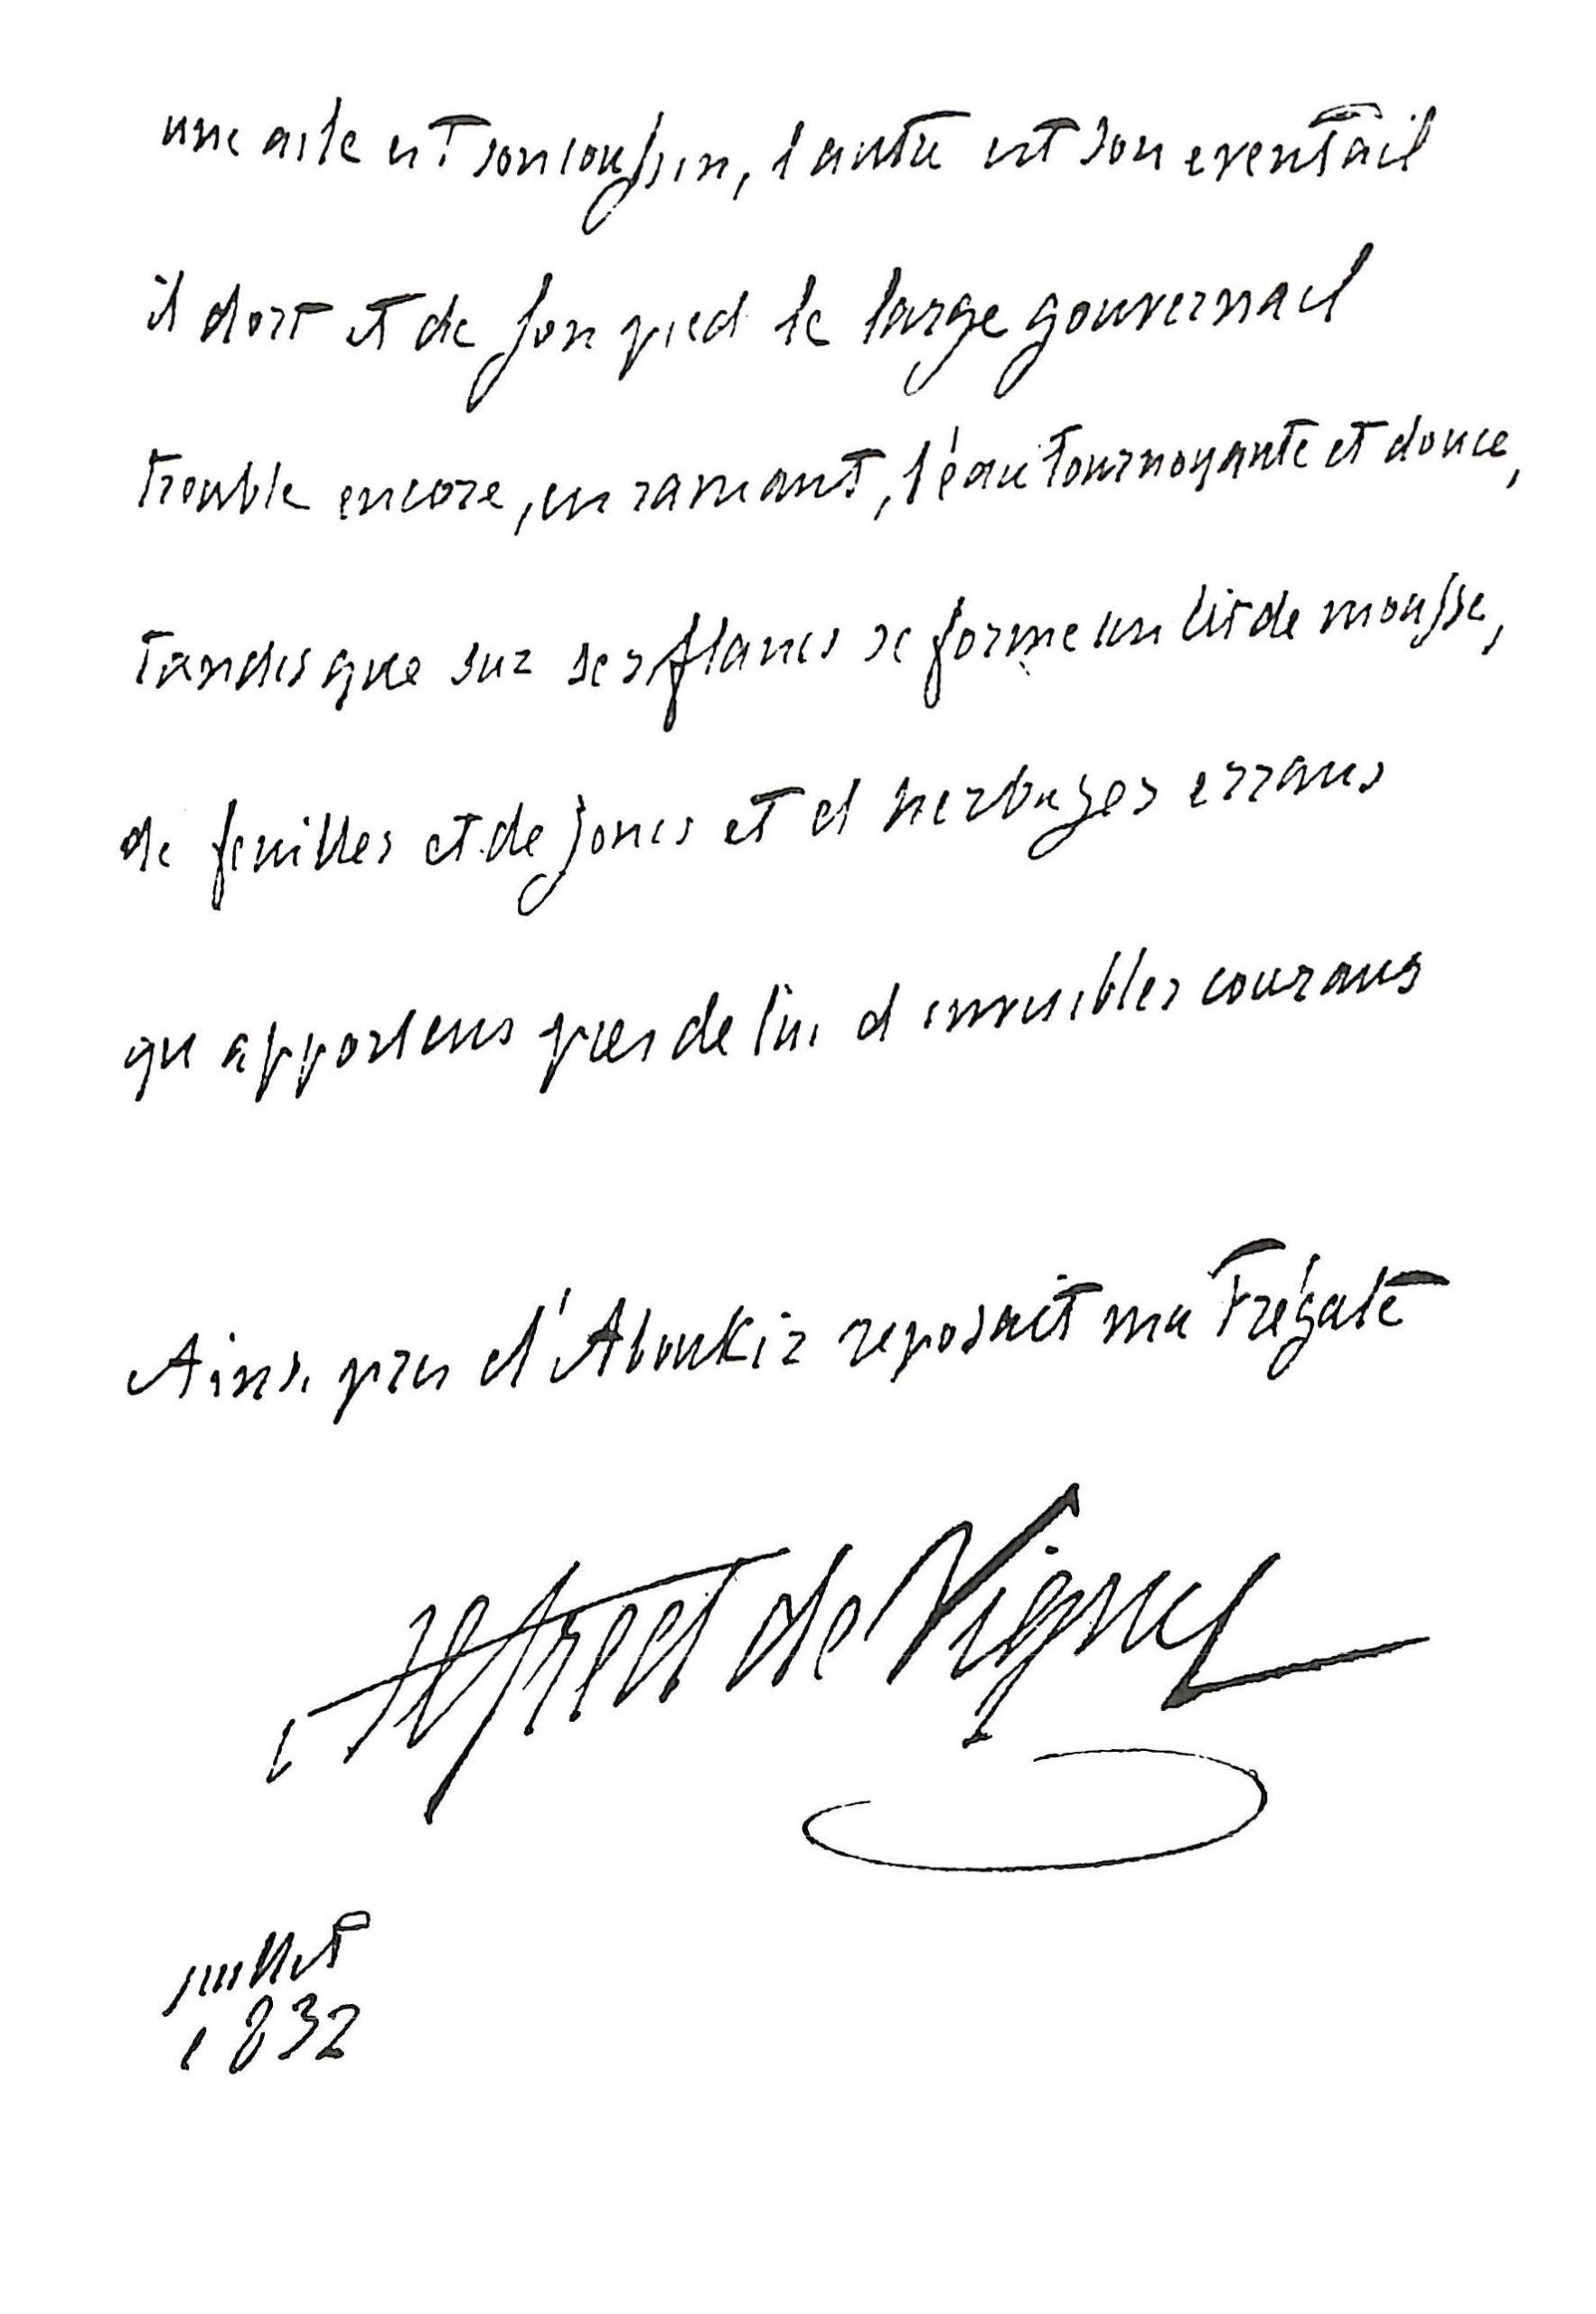 une aile est son coussin, l autre est son eventail
il dort et de son pied le large gouvernail
trouble encore, en ramant, l'éau tournoyante et douce,
tandis que sur ses flancs se forme un lit de mousse,
de feuilles et de joncs et d herbages errans
qu apportens pres de lui d invisibles courans
Ainsi pres d'Aboukir reposait ma Frégate
Alfred de Vigny
juillet
1832